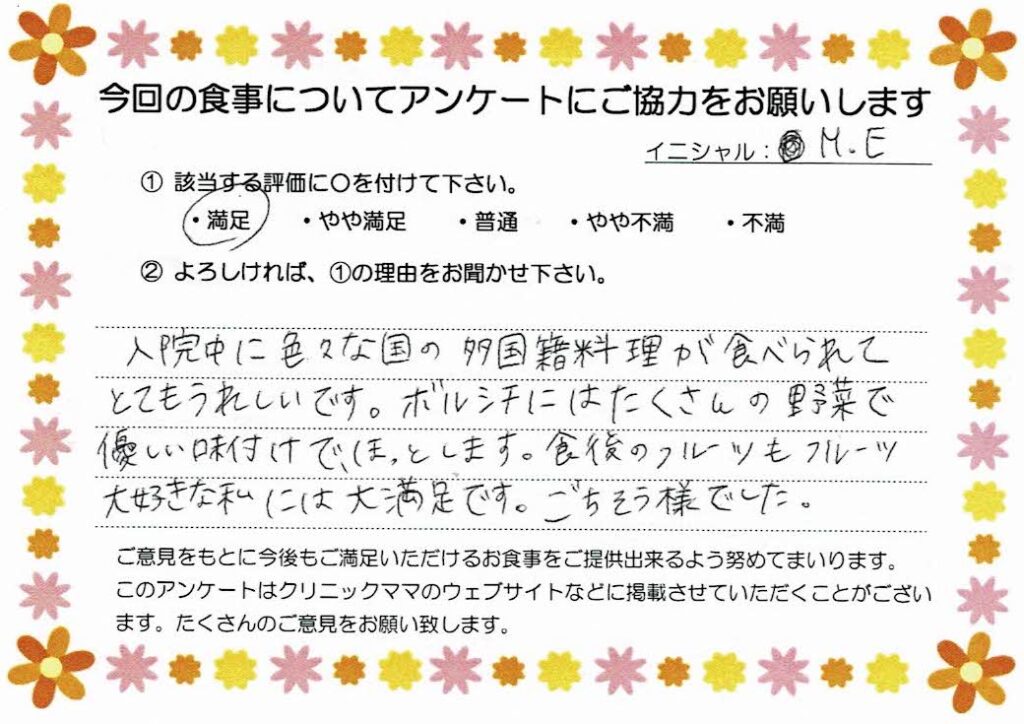 今回の食事についてアンケートにご協力をお願いします
イニシャル： M.E
① 該当する評価に〇を付けて下さい。
・満足 ・やや満足 ・普通 ・やや不満 ・不満
② よろしければ、①の理由をお聞かせ下さい。
入院中に色々な国の多国籍料理が食べられて
とてもうれしいです。ボルシチにはたくさんの野菜で
優しい味付けで、ほっとします。食後のフルーツもフルーツ
大好きな私には大満足です。ごちそう様でした。
ご意見をもとに今後もご満足いただけるお食事をご提供出来るよう努めてまいります。
このアンケートはクリニックママのウェブサイトなどに掲載させていただくことがござい
ます。たくさんのご意見をお願い致します。